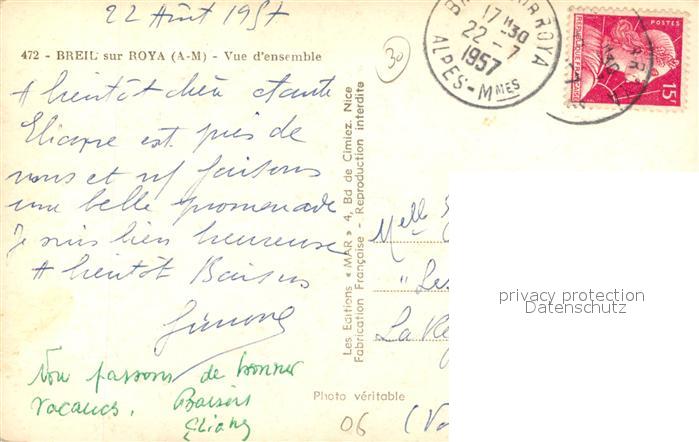 22 Août 1957
472 - BREIL sur ROYA (A-M) - Vue d'ensemble
A bientôt chère tante
Eliane est près de
nous et ns faisons
une belle promenade
Je suis bien heureuse
A bientôt Baisers
Simone
Nous passons de bonnes
vacances. Baisers
Eliane
Les Editions « MAR » 4, Bd de Cimiez, Nice
Fabrication Française - Reproduction interdite
Photo véritable
30
06
ROYA
17 H 30
22 - 7
1957
ALPES-MMES
POSTES
REPUBLIQUE FRANÇAISE
15F
Melle
"Les
(Va
privacy protection
Datenschutz